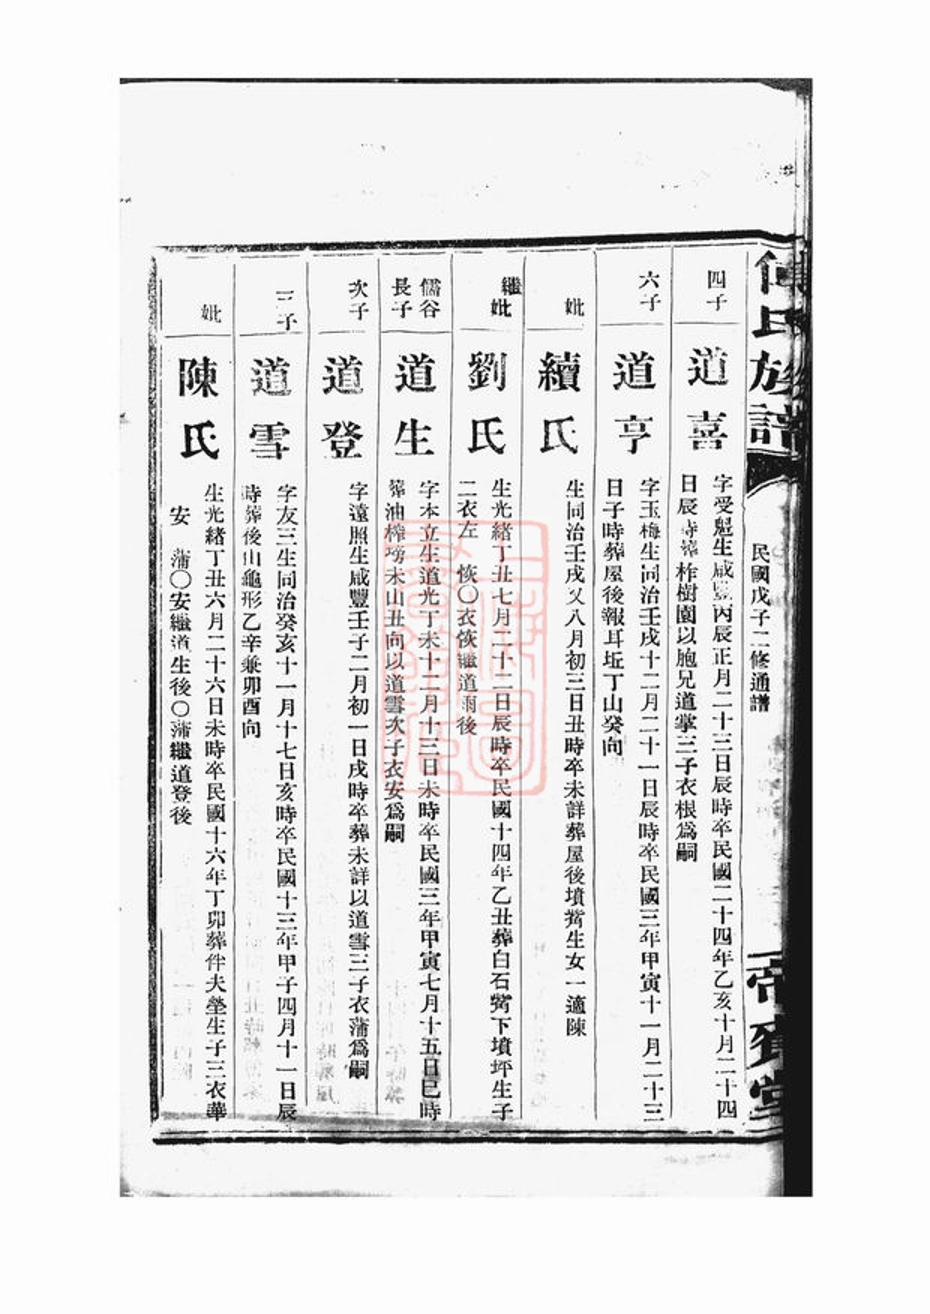 氏族譜
民國戊子二修通譜
四子
道喜
字受魁生咸豐丙辰正月二十三日辰時卒民國二十四年乙亥十月二十四
日辰時葬柞樹園以胞兄道掌三子衣根為嗣
六子
道亨
字玉梅生同治壬戌十二月二十一日辰時卒民國三年甲寅十一月二十三
日子時葬屋後報耳坵丁山癸向
妣
續氏
生同治壬戌又八月初三日丑時卒未詳葬屋後墳嘴生女一適陳
繼妣
劉氏
生光緒丁丑七月二十二日辰時卒民國十四年乙丑葬白石嘴下墳坪生子
二衣左 恢〇衣恢繼道爾後
儒谷
長子
道生
字本立生道光丁未十二月十三日未時卒民國三年甲寅七月十五日巳時
葬油榨塝未山丑向以道雪次子衣安為嗣
次子
道登
字遠照生咸豐壬子二月初一日戌時卒葬未詳以道雪三子衣蒲為嗣
三子
道雪
字友三生同治癸亥十一月十七日亥時卒民國十三年甲子四月十一日辰
時葬後山龜形乙辛兼卯酉向
妣
陳氏
生光緒丁丑六月二十六日未時卒民國十六年丁卯葬伴夫塋生子三衣華
安 蒲〇安繼道生後〇蒲繼道登後